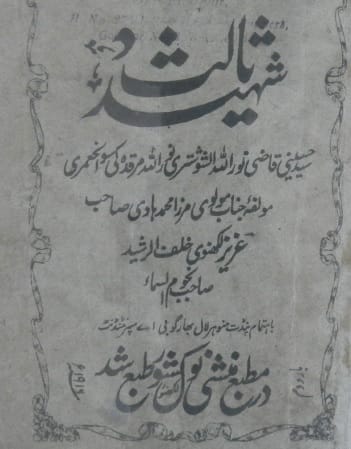 شہید ثالث
حسینی قاضی نوراللہ الشوشتری نوراللہ مرقدہ کی سوانحعمری
مولفۂ جناب مولوی مرزا محمد ہادی صاحب
عزیز لکھنوی خلف الرشید
صاحب نجوم السماء
باہتمام پنڈت منوہر لال بھارگو بی اے سپرنٹنڈنٹ
در مطبع منشی نولکشور طبع شد